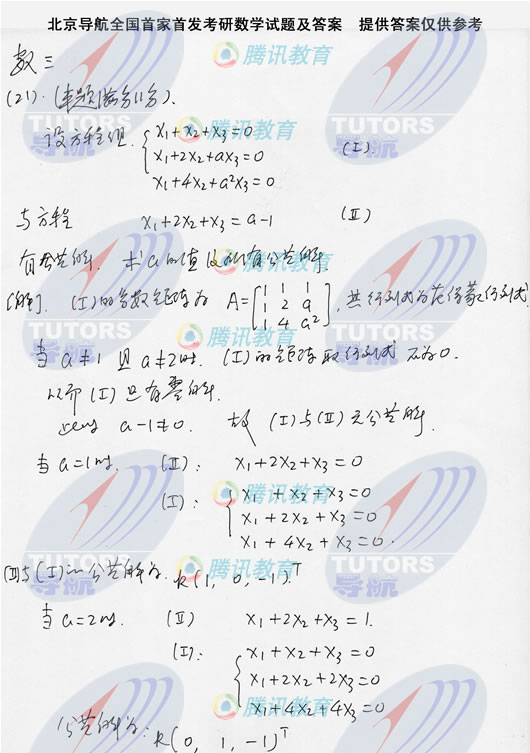 北京导航全国首家首发考研数学试题及答案 提供答案仅供参考
数三
(21). (本题满分11分).
设方程组 { x₁+x₂+x₃=0
x₁+2x₂+ax₃=0 (I)
x₁+4x₂+a²x₃=0
与方程 x₁+2x₂+x₃=a-1 (II)
有公共解. 求a的值及所有公共解.
[解]. (I)的系数矩阵为 A=[1 1 1; 1 2 a; 1 4 a²], 其行列式为范德蒙行列式
当 a≠1 且 a≠2时. (I)的矩阵取行列式 不为0.
从而(I)只有零解.
此时 a-1≠0. 故 (I)与(II)无公共解.
当a=1时. (II): x₁+2x₂+x₃=0
(I): { x₁+x₂+x₃=0
x₁+2x₂+x₃=0
x₁+4x₂+x₃=0.
(II)与(I)的公共解为. k(1, 0, -1)ᵀ
当a=2时. (II) x₁+2x₂+x₃=1.
(I): { x₁+x₂+x₃=0
x₁+2x₂+2x₃=0
x₁+4x₂+4x₃=0
公共解为: k(0, 1, -1)ᵀ
腾讯教育
TUTORS
导航